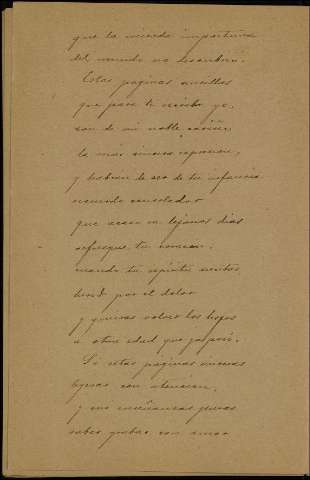 que la mirada importuna
del mundo no descubrió.
Estas páginas sencillas
que para ti escribo yo,
son de mi noble cariño
la más sincera expresión,
y también de tu infancia
recuerdo consolador
que acaso en lejanos días
refresque tu corazón,
cuando tu espíritu sientas
herido por el dolor
y quieras volver los ojos
a otra edad que ya pasó.
Si estas páginas sinceras
lees con atención,
y sus enseñanzas puras
sabes grabar con amor